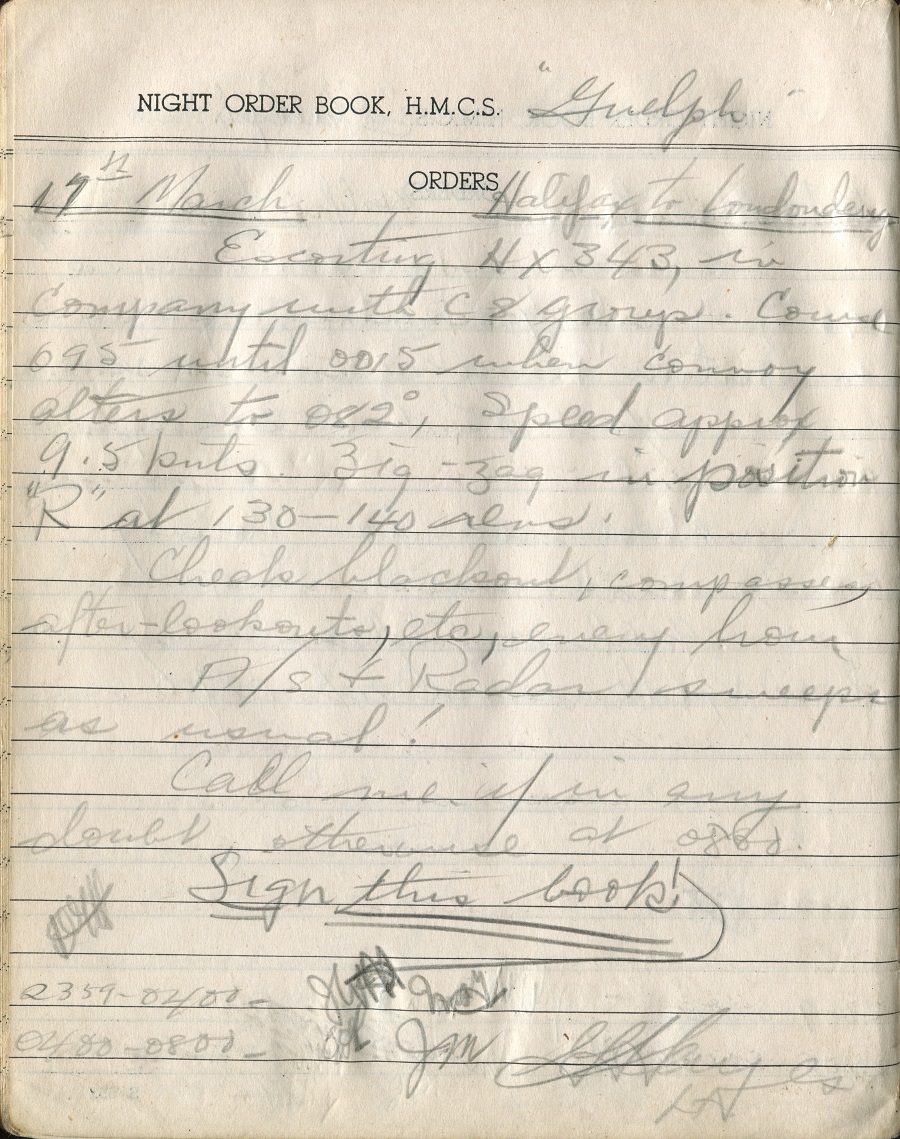 NIGHT ORDER BOOK, H.M.C.S. "Guelph"
ORDERS
17th March Halifax to Londonderry
Escorting HX 343, in
Company with C 8 group. Course
095 until 0015 when convoy
alters to 082°, Speed approx
9.5 knts. Zig-zag in position
"R" at 130-140 revs.
Check blackout, compasses,
after-lookouts, etc, every hour
A/S + Radar sweeps
as usual!
Call me if in any
doubt, otherwise at 0800.
Sign this book!
2359-0400-
0400-0800- JAW